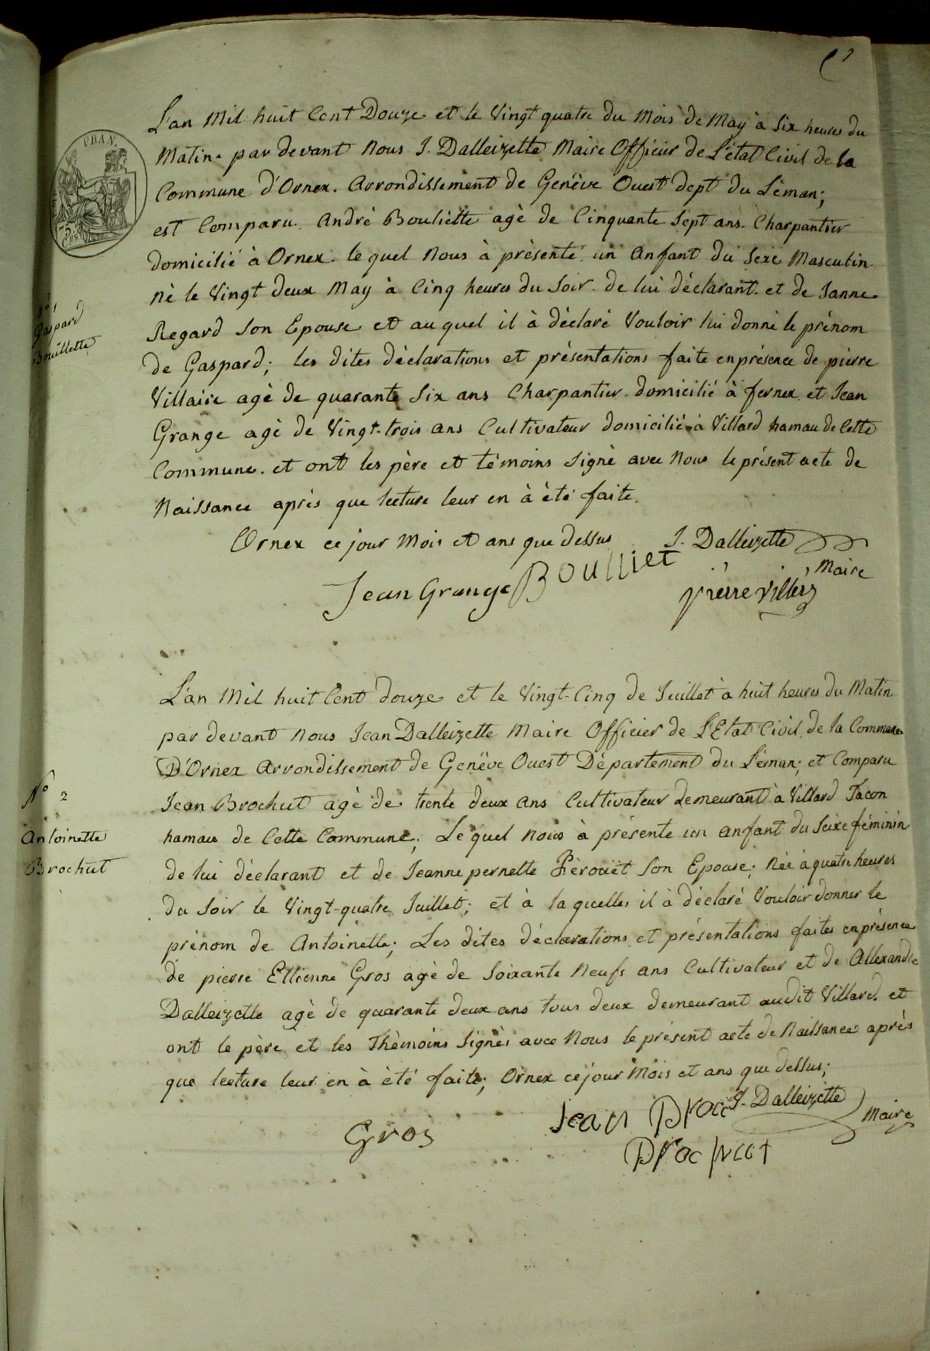 L'an Mil huit Cent Douze et le Vingt quatre du Mois de May à Six heures du
Matin. par devant Nous J. Dalleizette Maire Officier de L'état Civil de la
Commune d'Ornex. Arrondissement de Genêve Ouest dept du Léman;
est Comparu. André Bouliette agè de Cinquante Sept ans. Charpantier
domicilié à Ornex. le quel Nous à présenté un anfant du Sexe Masculin
Nè le Vingt deux May à Cinq heures du Soir. de lui déclarant. et de Janne
Regard Son Epouse et au quel il à déclaré Vouloir lui donné le prénom
de Gaspard; les dites déclarations et présentations faite en présence de pierre
Villaire agè de quarante Six ans Charpantier. domicilié à fernex. et Jean
Grange agè de Vingt-trois ans Cultivateur domicilié à Villard hamau de Cette
Commune. et ont les père et témoins Signé avec Nous le présent acte de
Naissance après que lecture leur en à été faite.
Ornex ce jour Mois et ans que dessus J. Dalleizette
Maire
Jean Grange Boulliet pierre villers
Gaspard
Bouillette
L'an Mil huit Cent douze et le Vingt-Cinq de Juillet à huit heures du Matin
par devant Nous Jean Dalleizette Maire Officier de L'Etat Civil de la Commune
D'Ornex Arrondissement de Genêve Ouest Département du Léman; et Comparu
Jean Brochut agè de trente deux ans Cultivateur demeurant à Villard Tacon
hamau de Cette Commune; Le quel Nous à présente un anfant du Seixe féminin
de lui déclarant et de Jeanne pernette Pèrouët Son Epouse; Née à quatre heures
du Soir le Vingt-quatre Juillet; et à laquelles il à déclaré Vouloir donner le
prénom de Antoinette; Les dites déclarations et présentations faites en présence
de pierre Ettienne Gros agè de Soixante Neufs ans Cultivateur et de Allexandre
Dalleizette agè de quarante deux ans tous deux demeurant audit Villard. et
ont le père et les Thémoins Signés avec Nous le présent acte de Naissance après
que lecture leur en à été faite; Ornex ce jour Mois et ans que dessus;
J. Dalleizette Maire
Gros Jean Broc
Brochut
N° 2
Antoinette
Brochut